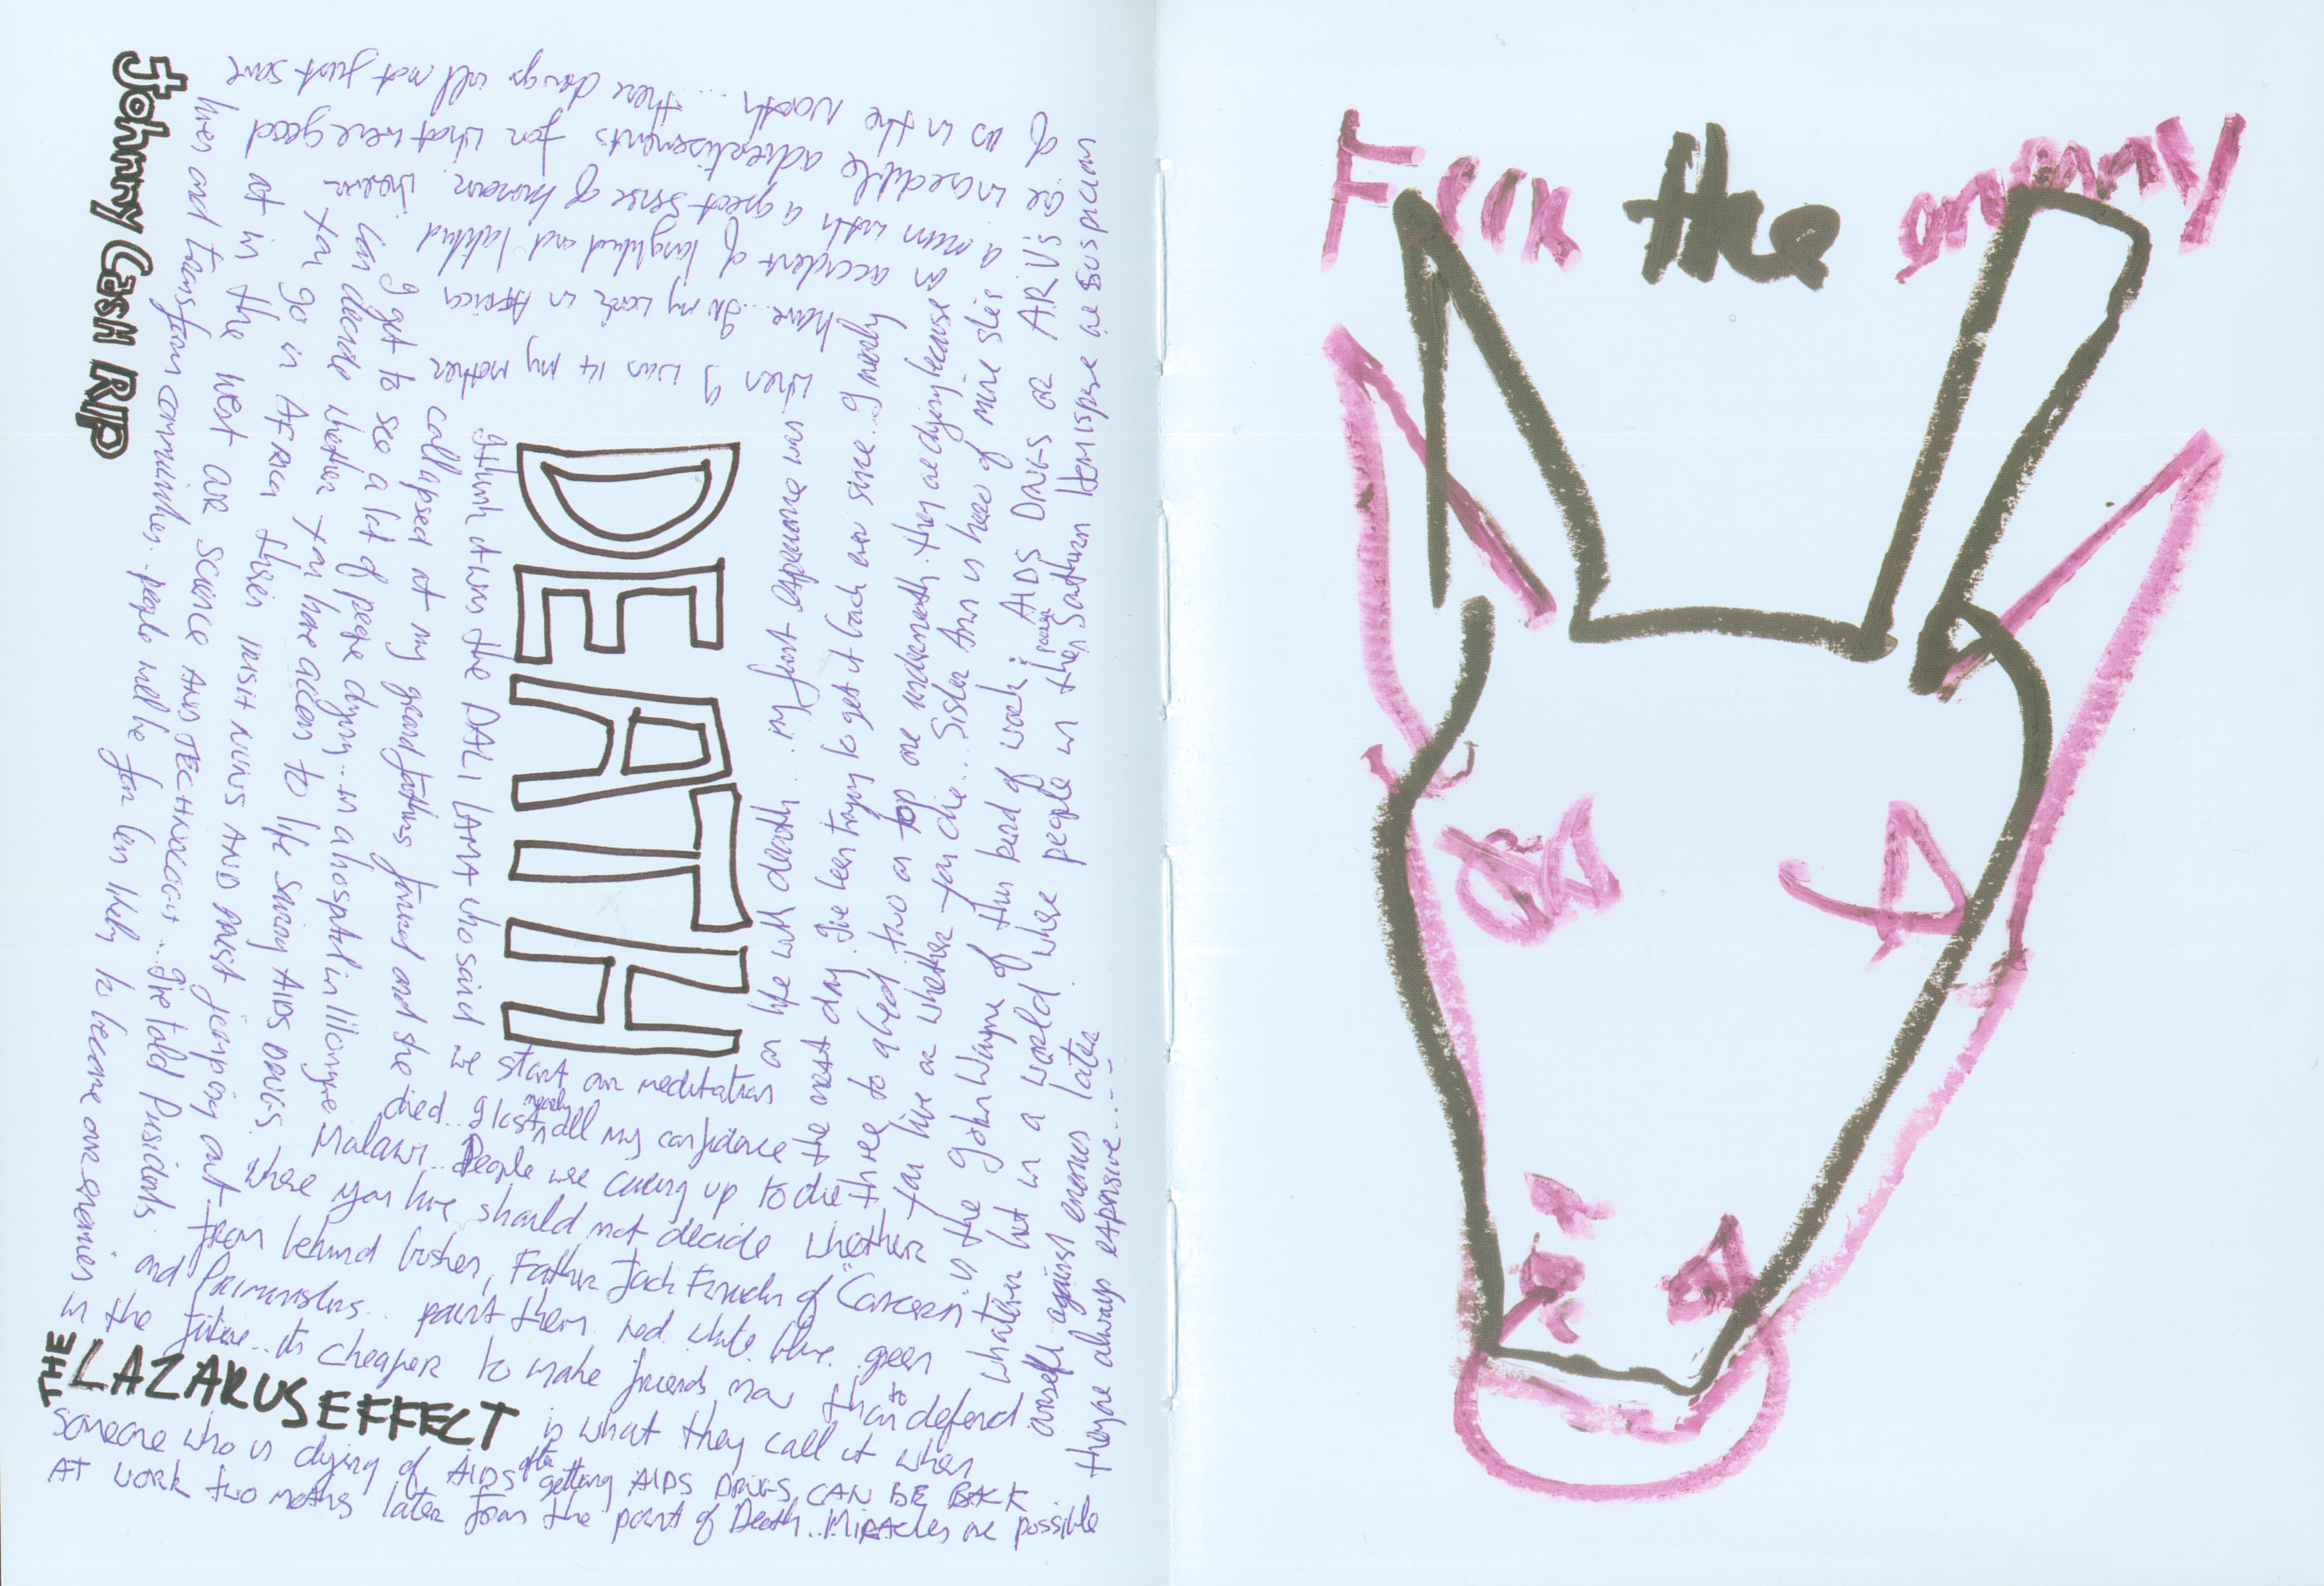 Johnny Cash RIP
DEATH
I think it was the DALI LAMA who said if
start our meditation
on life with death... my first experience was
when I was 14 my mother
collapsed at my grandfathers funeral and she
died.. I lost nearly all my confidence
the next day. I've been trying to get it back ever since..
have... In my work in AFRICA
I get to see a lot of people dying.. in a hospital in lilongwe
Malawi.. People were queuing up to die
three to a bed two on top one underneath. they are dying because
accident of longitude and latitude
can decide whether you have access to life saving AIDS DRUGS
Where you live should not decide whether
you live or whether you die... Sister Ann is hero of mine she's
a nun with a great sense of humour. wherever
You go in AFRICA theres IRISH NUNS AND PRIEST jumping out
from behind bushes, Father Jack of "Concern" is
the John Wayne of this kind of work: AIDS DRUGS or ARV's
are incredible advertisements for what were good
at in the west our SCIENCE AND TECHNOLOGY.. I've told Presidents
and Primeministers.. paint them red white blue.. green
whatever but in a world where people in the poorer Southern Hemispere are suspicious
of us in the North... these drugs will not just save
lives and transform communities. people will be far less likely to become our enemies
in the future.. its cheaper to make friends now than to defend
ourselfs against enemies later
they're always expensive...
THE LAZARUS EFFECT is what they call it when
someone who is dying of AIDS after getting AIDS DRUGS, CAN BE BACK
AT WORK two moths later from the point of Death.. MIRACLES are possible
the